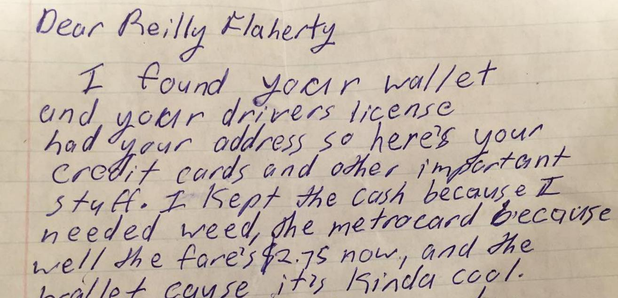 Dear Reilly Flaherty
I found your wallet
and your drivers license
had your address so here's your
credit cards and other important
stuff. I kept the cash because I
needed weed, the metrocard because
well the fare's $2.75 now, and the
wallet cause it's kinda cool.